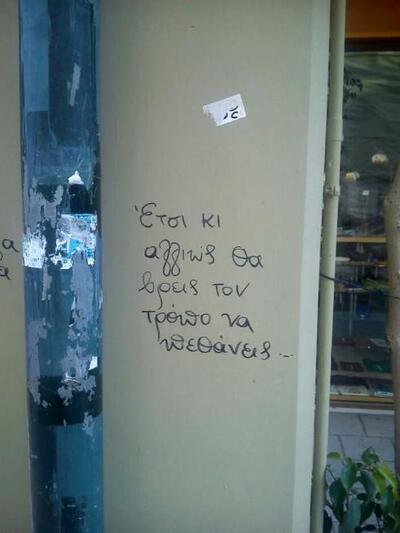 Έτσι κι
αλλιώς θα
βρεις τον
τρόπο να
πεθάνεις...